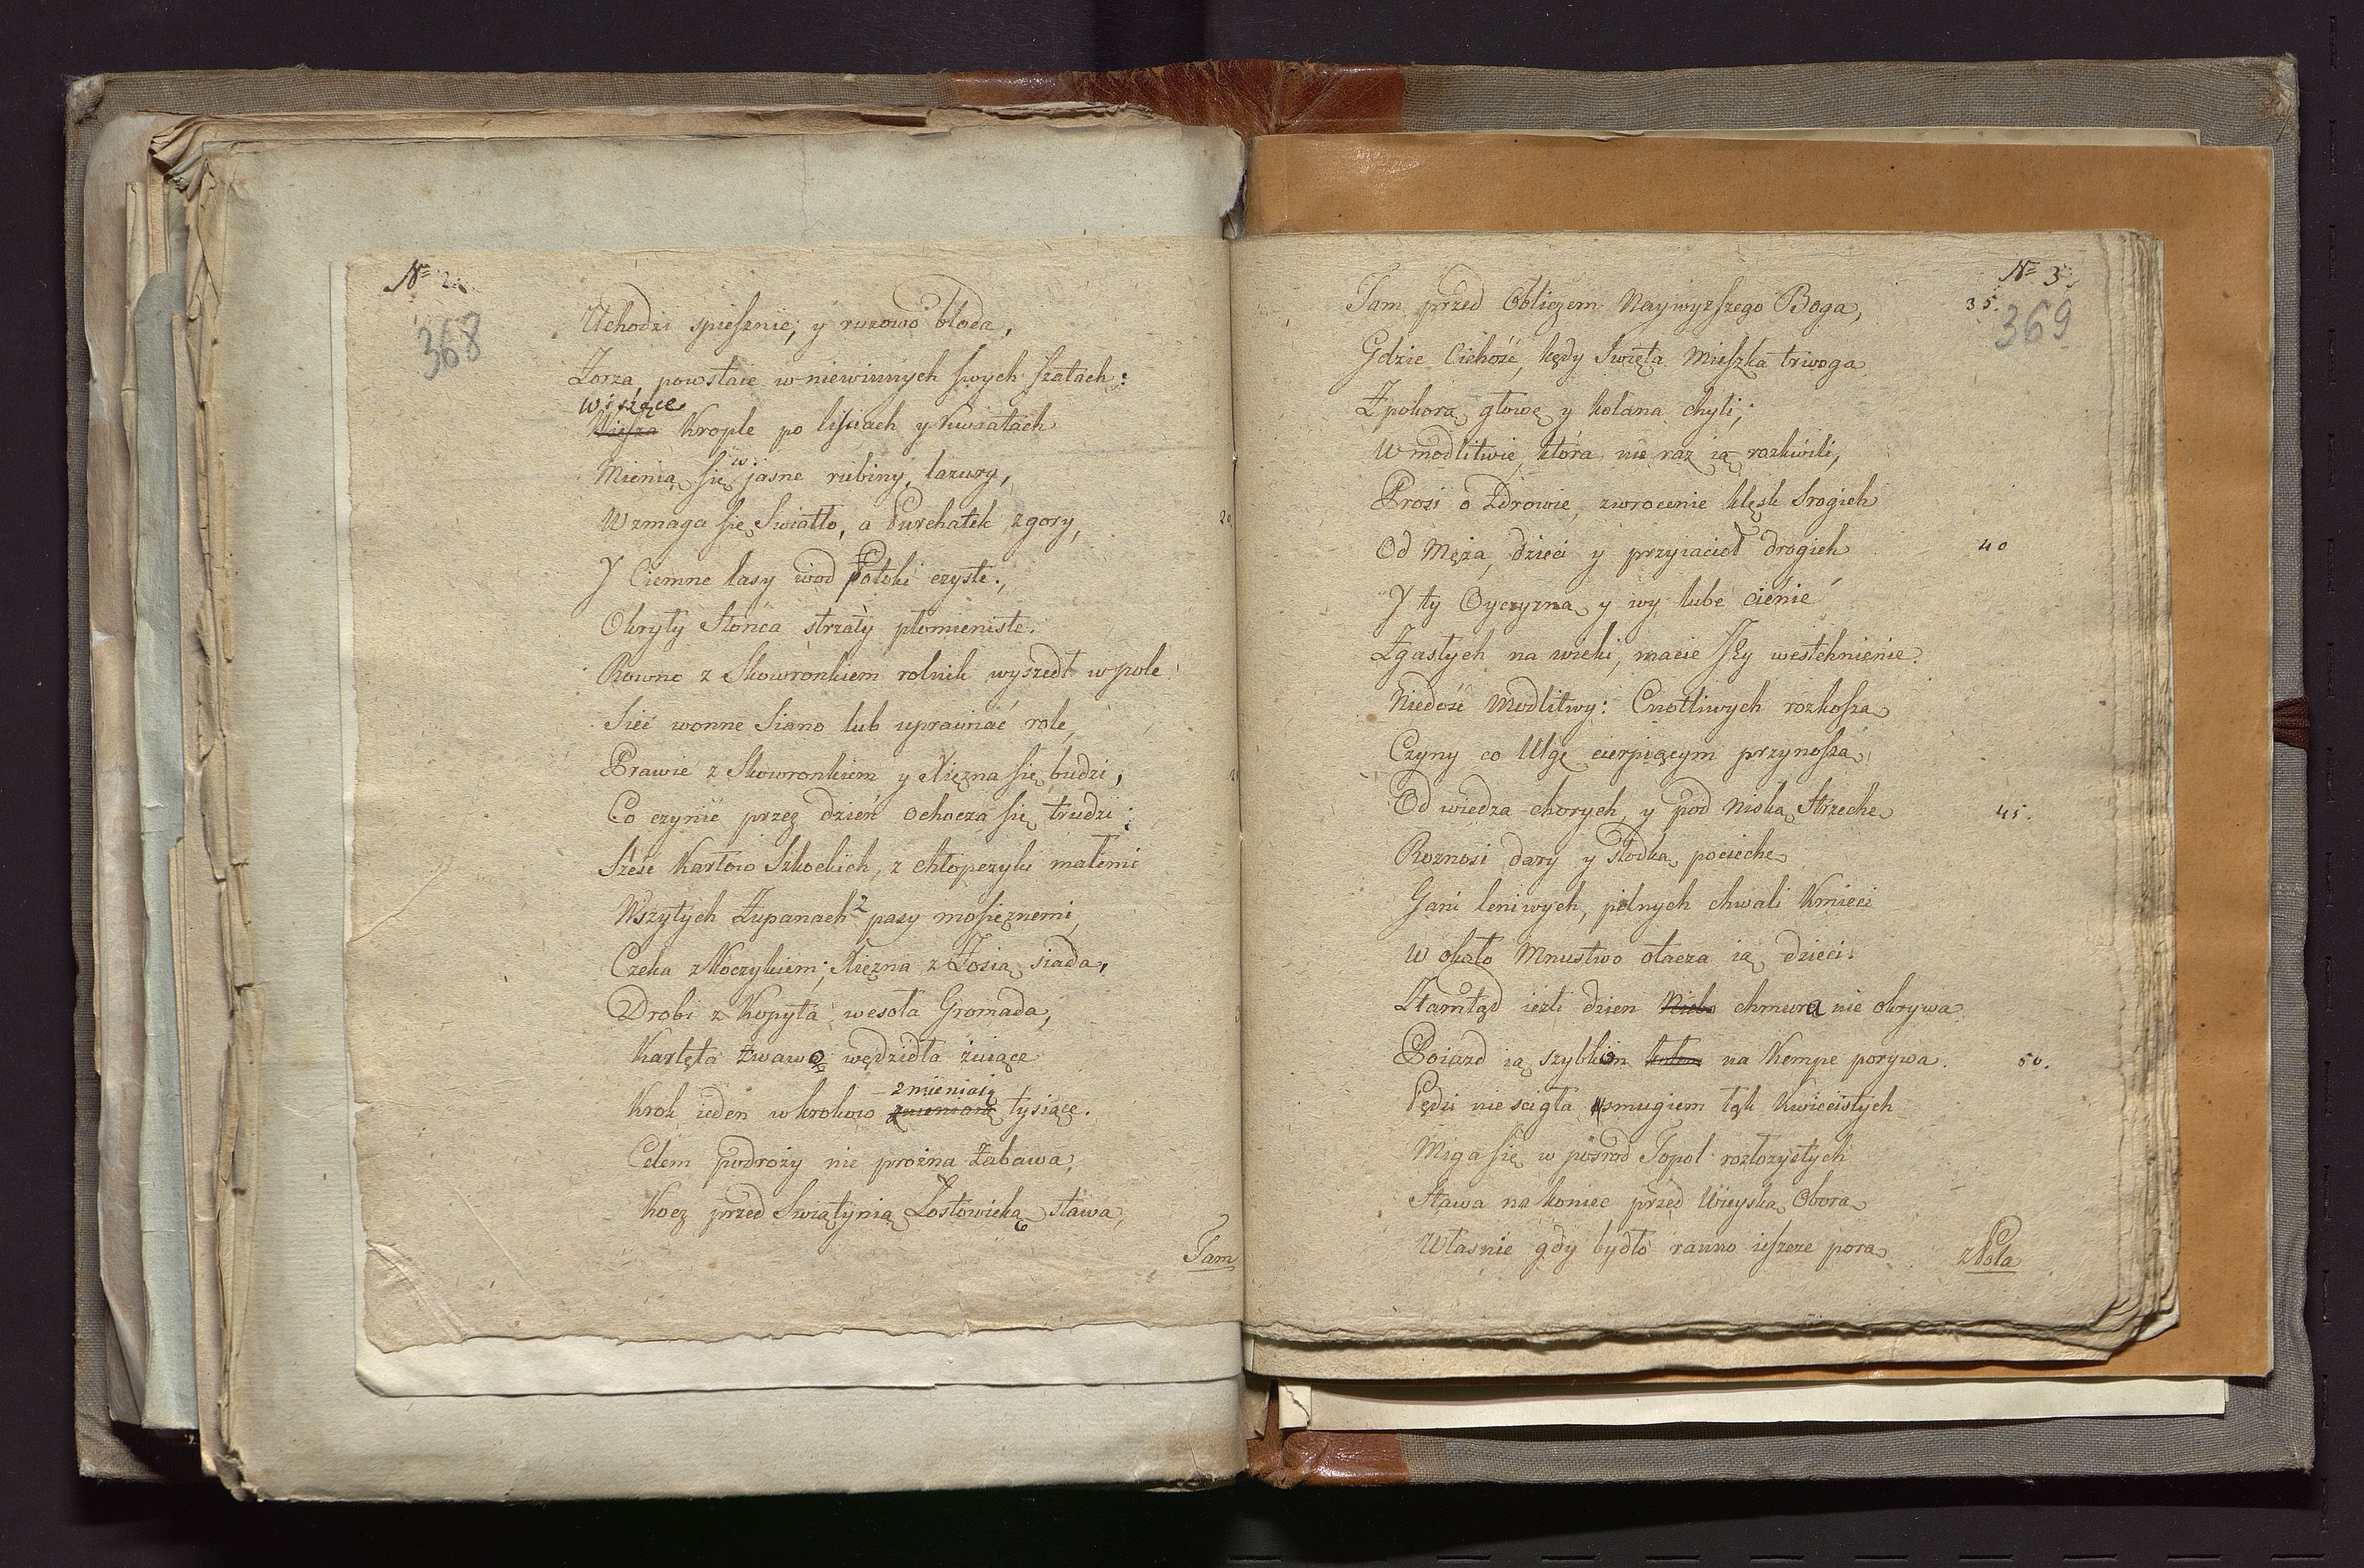 No 2.
368
Uchodzi spiesznie, y ruzowo blada,
Zorza, powstaie w niewinnych swych szatach:
wiszące
Wiesza Krople po lisciach y Kwiatach
Mienią się w jasne rubiny, lazury,
Wzmaga się Swiatło, a Purchatek z gory,
20
Y Ciemne lasy wod Potoki czyste.,
Okryły Słońca strzały płomieniste.
Rowno z Skowronkiem rolnik wyszedł w pole
Siec wonne Siano lub uprawiać role,
Prawie z Skowronkiem y Xiężna się budzi,
Co czynic przez dzień ochocza się trudzi;
Sześc Karłow Szkockich, z chłopczyki małemi
Wszytych Zupanach z pasy mosięznemi,
Czeka z Koczykiem; Xięzna z Zosią siada,
Drobi z Kopyta wesoła Gromada,
Karlęta zwawe wędzidła zuiące
zmieniaią
Krok ieden w krokow zmieniaią tysiące.
Celem podroży nie prożna Zabawa,
Kocz przed Swiątynią Łostowicką stawa,
Tam
No 3.
369
Tam przed Obliczem Naywyzszego Boga,
35.
Gdzie Cichość, kędy Swięta mieszka trwoga
Z pokorą głowę y kolana chyli;
W modlitwie, ktora nie raz ią rozkwili,
Prosi o Zdrowie, zwrocenie klęsk Srogich
Od Męża, dzieci y przyiacioł drogich
40
Y ty Oyczyzna y wy lube cienie
Zgasłych na wieki, macie Jey westchnienie.
Niedość Modlitwy: Cnotliwych rozkoszą
Czyny co Ulgę cierpiącym przynoszą
Od wiedza chorych, y pod niską Strzechę
45.
Roznosi dary y słodką pociechę
Gani leniwych, pilnych chwali Kmieci
W około Mnustwo otacza ią dzieci.
Ztamtąd iezli dzien Niebo chmura nie okrywa
Poiazd ią szybkim kołem na Kempe porywa.
50.
Pędzi niescigła smugiem łąk Kwiecistych
Miga się w posrod Topol rozłozystych
Stawa na koniec przed Wieyską Oborą
Własnie gdy bydło ranno ieszcze porą
z Pola